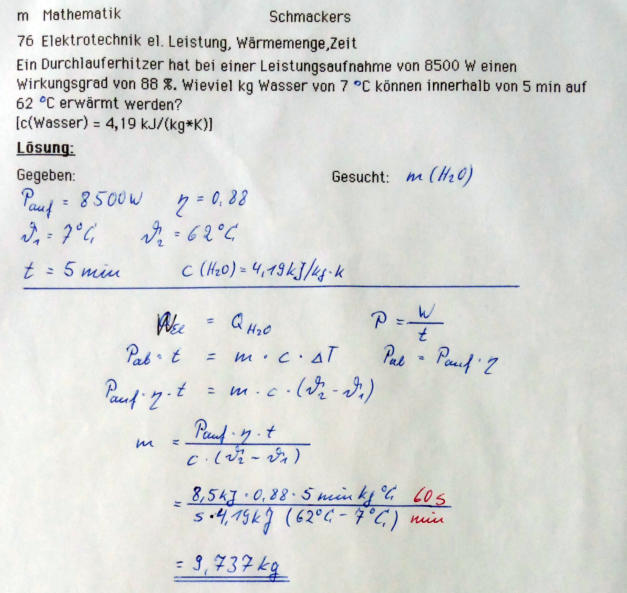 m Mathematik Schmackers
76 Elektrotechnik el. Leistung, Wärmemenge,Zeit
Ein Durchlauferhitzer hat bei einer Leistungsaufnahme von 8500 W einen
Wirkungsgrad von 88 %. Wieviel kg Wasser von 7 °C können innerhalb von 5 min auf
62 °C erwärmt werden?
[c(Wasser) = 4,19 kJ/(kg*K)]
Lösung:
Gegeben: Gesucht: m (H₂O)
P_auf = 8500W η = 0,88
ϑ₁ = 7°C ϑ₂ = 62°C
t = 5 min c (H₂O) = 4,19 kJ/kg·K
W_el = Q_H₂O P = W/t
P_ab · t = m · c · ΔT P_ab = P_auf · η
P_auf · η · t = m · c · (ϑ₂ - ϑ₁)
m = P_auf · η · t / c · (ϑ₂ - ϑ₁)
= 8,5 kJ · 0,88 · 5 min kg °C 60 s / s · 4,19 kJ (62°C - 7°C) min
= 9,737 kg